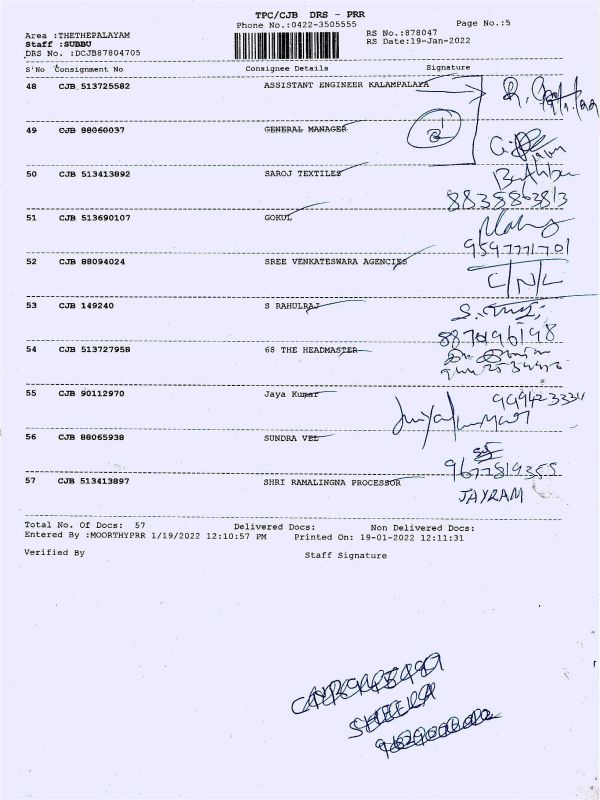 TPC/CJB DRS - PRR
Phone No.:0422-3505555
Page No.:5
Area :THETHEPALAYAM
RS No.:878047
Staff :SUBBU
RS Date:19-Jan-2022
DRS No. :DCJB87804705
S'No Consignment No Consignee Details Signature
48 CJB 513725582 ASSISTANT ENGINEER KALAMPALAYA
49 CJB 88060037 GENERAL MANAGER
50 CJB 513413892 SAROJ TEXTILES
8838863813
51 CJB 513690107 GOKUL
9597771701
52 CJB 88094024 SREE VENKATESWARA AGENCIES
C/N/L
53 CJB 149240 S RAHULRAJ
54 CJB 513727958 68 THE HEADMASTER
55 CJB 90112970 Jaya Kumar
56 CJB 88065938 SUNDRA VEL
9677819355
57 CJB 513413897 SHRI RAMALINGNA PROCESSOR
JAYRAM
Total No. Of Docs: 57 Delivered Docs: Non Delivered Docs:
Entered By :MOORTHYPRR 1/19/2022 12:10:57 PM Printed On: 19-01-2022 12:11:31
Verified By Staff Signature